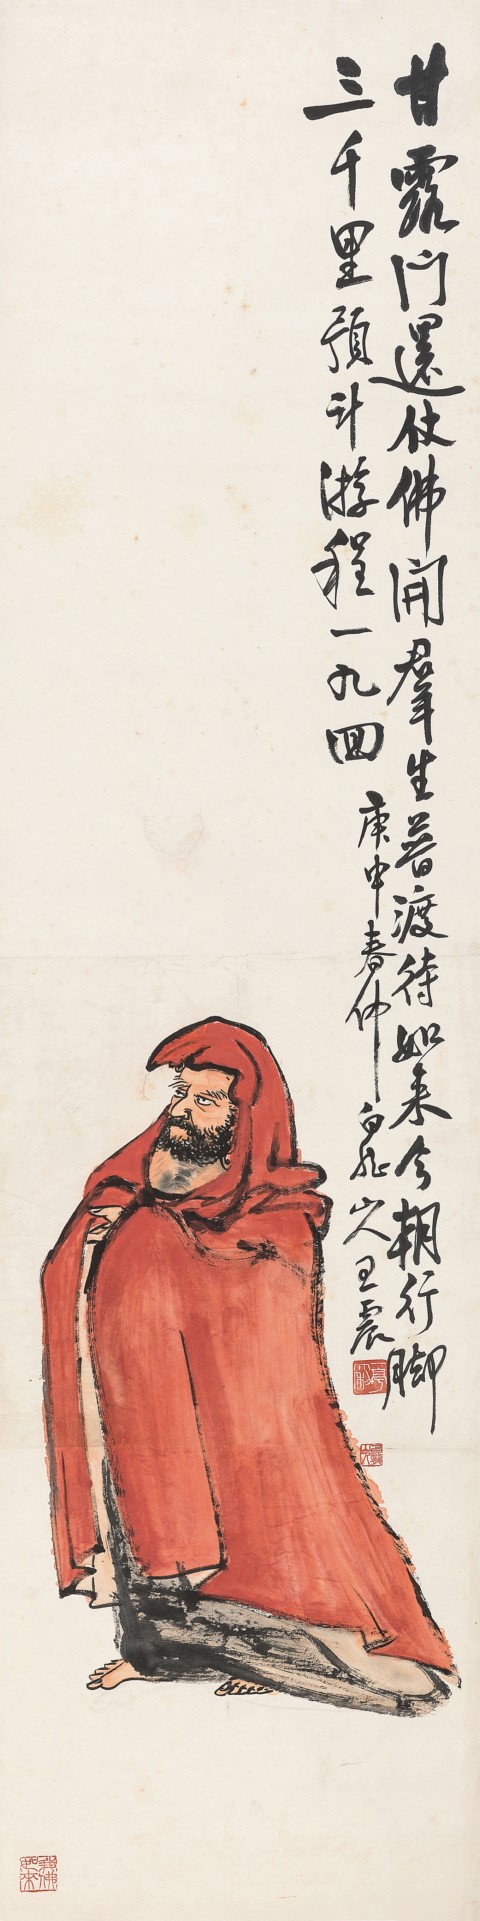 甘露門還仗佛開羣生普渡待如来今朝行脚
三千里預計游程一九回
庚申春仲白龍山人王震